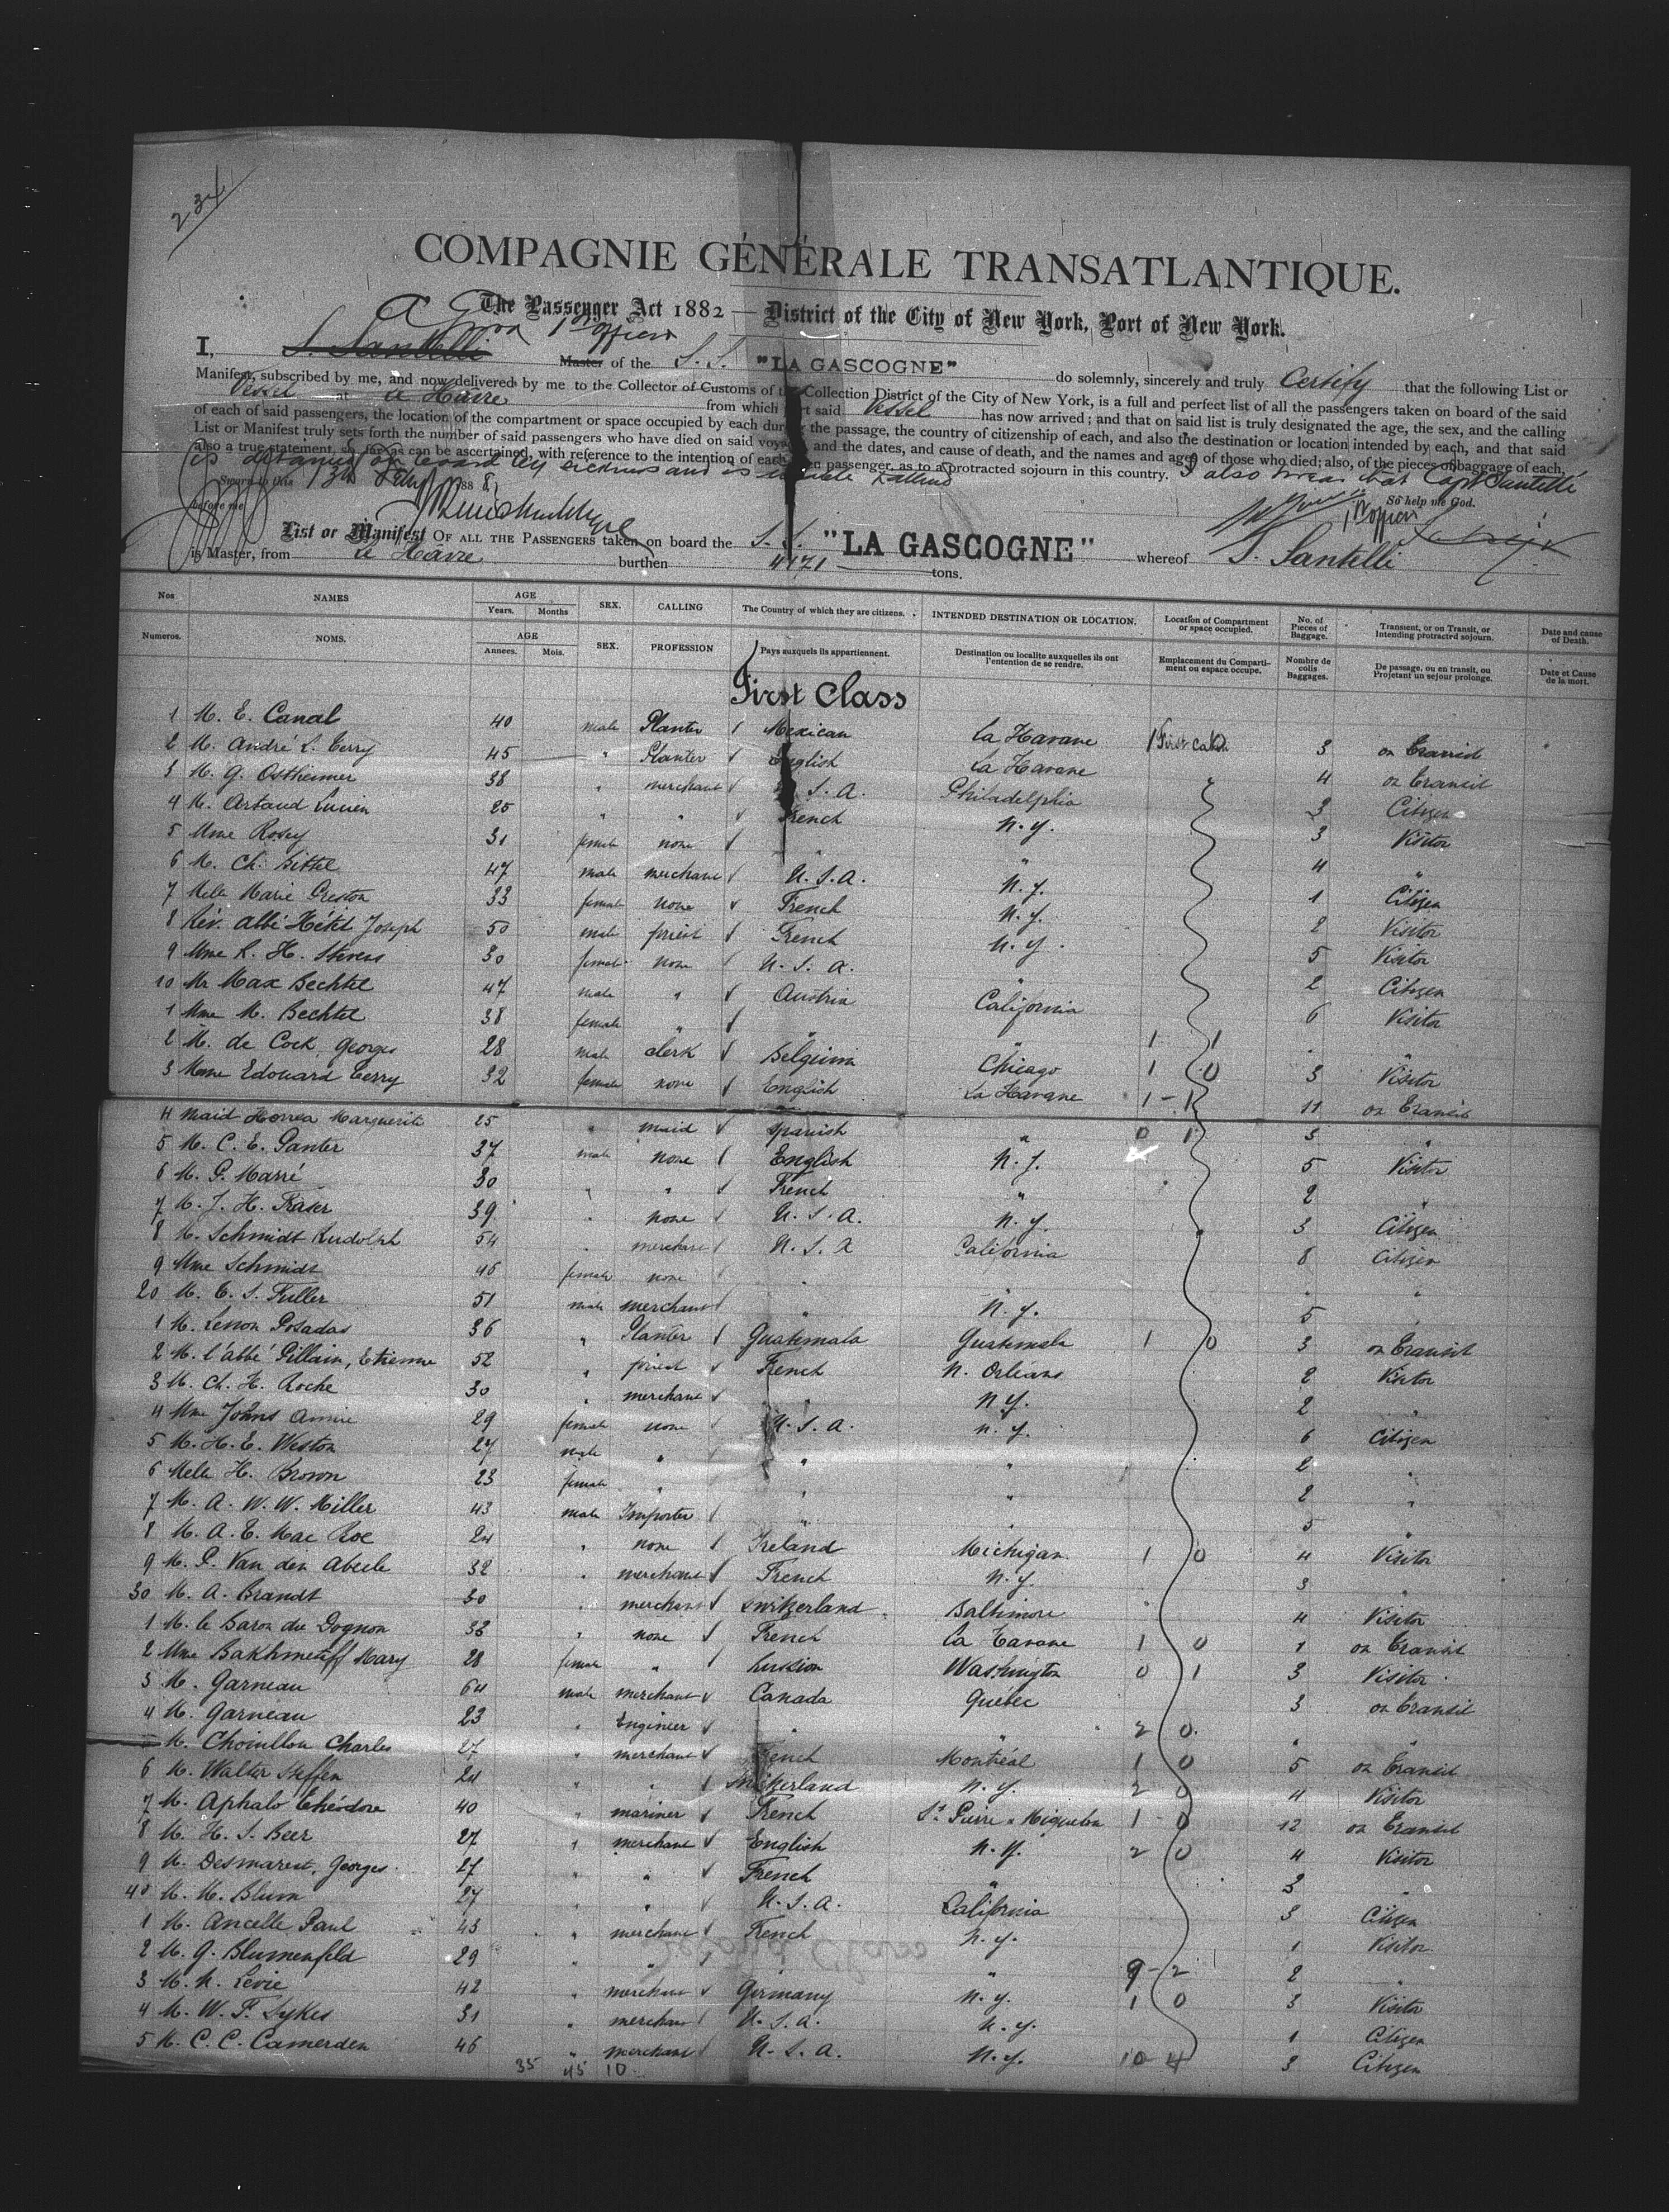 234
COMPAGNIE GÉNÉRALE TRANSATLANTIQUE.
The Passenger Act 1882 — District of the City of New York, Port of New York.
1st officer
I, S. Santelli Master of the S.S. "LA GASCOGNE" do solemnly, sincerely and truly Certify that the following List or
Manifest, subscribed by me, and now delivered by me to the Collector of Customs of the Collection District of the City of New York, is a full and perfect list of all the passengers taken on board of the said
Vessel at Le Hâvre from which port said Vessel has now arrived; and that on said list is truly designated the age, the sex, and the calling
of each of said passengers, the location of the compartment or space occupied by each during the passage, the country of citizenship of each, and also the destination or location intended by each, and that said
List or Manifest truly sets forth the number of said passengers who have died on said voyage, and the dates, and cause of death, and the names and ages of those who died; also, of the pieces of baggage of each,
also a true statement, so far as can be ascertained, with reference to the intention of each passenger, as to a protracted sojourn in this country. I also swear that Capt Santelli
is detained on board by sickness and is unable to attend
Sworn to this 13th 1888 So help me God.
before me 1st officer
List or Manifest OF ALL THE PASSENGERS taken on board the S.S. "LA GASCOGNE" whereof S. Santelli
is Master, from Le Hâvre burthen 4171 tons.
Nos NAMES AGE SEX. CALLING The Country of which they are citizens. INTENDED DESTINATION OR LOCATION. Location of Compartment or space occupied. No. of Pieces of Baggage. Transient, or on Transit, or Intending protracted sojourn. Date and cause of Death.
Years. Months
Numeros. NOMS. AGE SEX. PROFESSION Pays auxquels ils appartiennent. Destination ou localite auxquelles ils ont l'entention de se rendre. Emplacement du Compartiment ou espace occupe. Nombre de colis Baggages. De passage, ou en transit, ou Projetant un sejour prolonge. Date et Cause de la mort.
Annees. Mois.
First Class
1 M. E. Canal 40 male Planter Mexican La Havane First Cabin 3 on Transit
2 M. André L. Terry 45 " Planter English La Havane 4 on Transit
3 M. G. Ostheimer 38 " merchant U.S.A. Philadelphia " 3 Citizen
4 M. Artaud Lucien 25 " " French N.Y. 3 Visitor
5 Mme Rosey 31 female none " " 4 "
6 M. Ch. Sittel 47 male merchant U.S.A. N.Y. 1 Citizen
7 Melle Marie Greston 33 female none French N.Y. 2 Visitor
8 Rév. abbé Hétet Joseph 50 male priest French N.Y. 5 Visitor
9 Mme R. H. Stevens 30 female none U.S.A. " 2 Citizen
10 Mr Max Bechtel 47 male " Austria California 6 Visitor
1 Mme M. Bechtel 38 female " " " 1 1 " "
2 M. de Cock, Georges 28 male clerk Belgium Chicago 1 0 3 Visitor
3 Mme Edouard Terry 32 female none English La Havane 1 - 1 11 on Transit
4 Maid Marguerite 25 " maid Spanish " 0 1 3 "
5 M. C. E. Ganter 37 male none English N.Y. 5 Visitor
6 M. P. Marré 30 " " French " 2 "
7 M. J. H. Fraser 39 " none U.S.A. N.Y. 3 Citizen
8 M. Schmidt Rudolph 54 " merchant U.S.A California 8 Citizen
9 Mme Schmidt 46 female none " " " "
20 M. E. S. Fuller 51 male merchant " N.Y. 5 "
1 M. Posadas 36 " Planter Guatemala Guatemala 1 0 3 on Transit
2 M. l'abbé Gillain, Etienne 52 " priest French N. Orléans 2 Visitor
3 M. Ch. H. Roche 30 " merchant " N.Y. 2 "
4 Mme Johns Annie 29 female none U.S.A. N.Y. 6 Citizen
5 M. H. E. Weston 27 male " " " 2 "
6 Melle H. Brown 23 female " " " 2 "
7 M. A. W. W. Miller 43 male Importer " " 5 "
8 M. A. E. Mac Roe 24 " none Ireland Michigan 1 0 4 Visitor
9 M. P. Van den Abeele 32 " merchant French N.Y. 3 "
30 M. A. Brandt 30 " merchant Switzerland Baltimore 4 Visitor
1 M. le Baron du Dognon 38 " none French La Havane 1 0 1 on Transit
2 Mme Bakhmeteff Mary 28 female " Russian Washington 0 1 3 Visitor
3 M. Garneau 64 male merchant Canada Quebec 3 on Transit
4 M. Garneau 23 " Engineer " " 2 0 " "
5 M. Chouillou Charles 27 " merchant French Montréal 1 0 5 on Transit
6 M. Walter Steffen 24 " " Switzerland N.Y. 2 0 4 Visitor
7 M. Aphalo Théodore 40 " mariner French St Pierre & Miquelon 1 - 0 12 on Transit
8 M. H. S. Beer 27 " merchant English N.Y. 2 0 4 Visitor
9 M. Desmarest, Georges 27 " " French " 3 "
40 M. M. Blum 27 " " U.S.A. California 3 Citizen
1 M. Ancelle Paul 43 " merchant French N.Y. 1 Visitor
2 M. G. Blumenfeld 29 " " " " 9 - 2 2 "
3 M. N. Levie 42 " merchant Germany N.Y. 1 0 3 Visitor
4 M. W. F. Sykes 31 " merchant U.S.A. N.Y. 1 Citizen
5 M. C. C. Camerden 46 " merchant U.S.A. N.Y. 10 4 3 Citizen
35 45 10